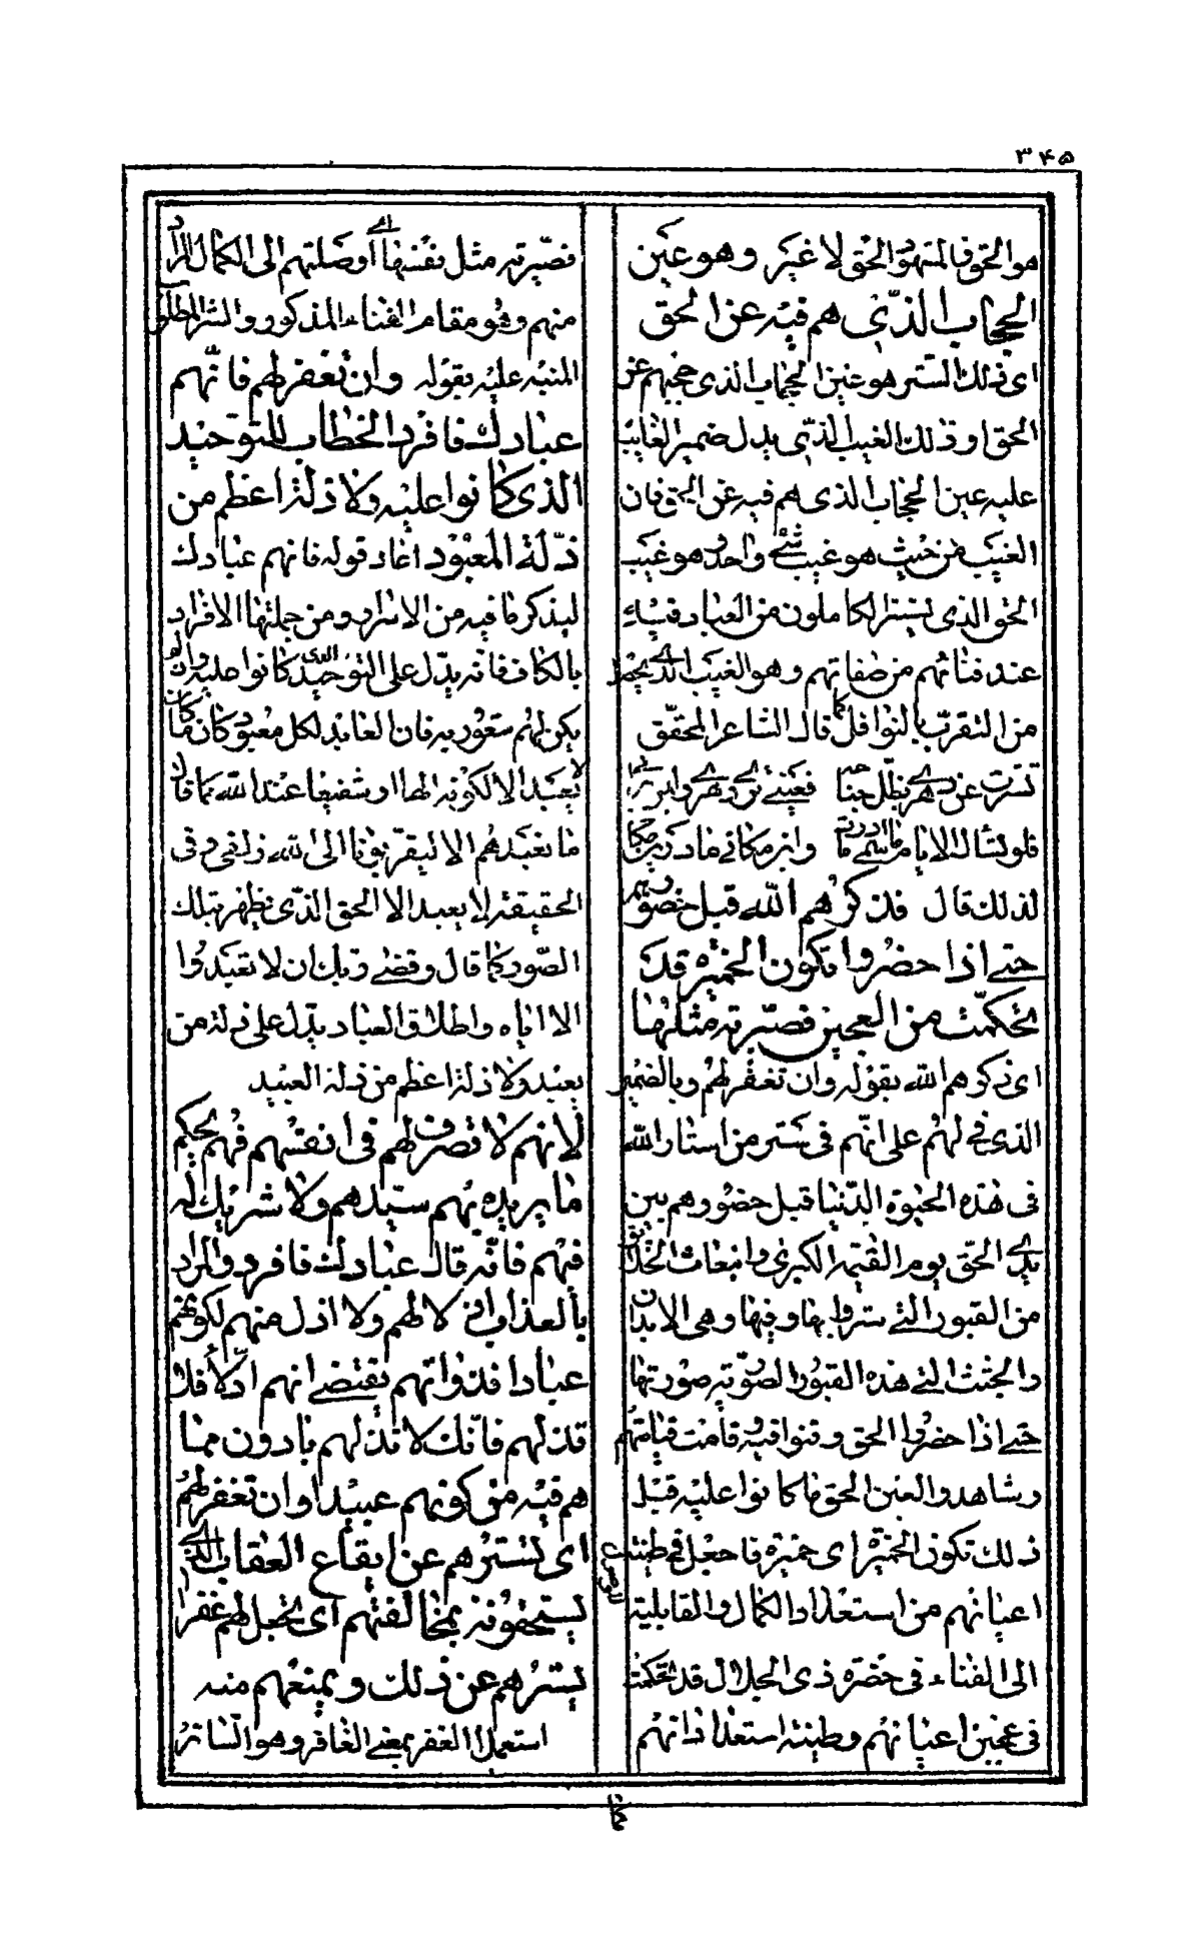 ٣۴۵
هو الحق فالمتهوّ الحق لا غير وهو عين
الحجاب الذّي هم فيه عن الحق
اى ذلك الستر هو عين الحجاب الذى حجبهم عن
الحق او ذلك الغيب الذّى يدل ضمير الغايب
عليه عين الحجاب الذى هم فيه عن الحق فان
الغيب من حيث هو غيب شئ واحد وهو غيب
الحق الذى يستتر الكاملون من العباد فيه
عند فنائهم من صفاتهم وهو الغيب الذى يحصل
من التقرب بالنوافل كما قال الشاعر المحقق
تسترت عن دهرى بظل جنابه فعينى ترى دهرى وليس يرانى
فلو تسأل الايام ما اسمى ما درت واين مكانى ما درين مكانى
لذلك قال فذكرهم الله قبل حضورهم
حتى اذا حضروا تكون الخميرة قد
تحكمت من العجين فصيرته مثلها
اى ذكرهم الله بقوله وان تغفر لهم وبالضمير
الذى فى لهم على انّهم فى ستر من استار الله
فى هذه الحيوة الدّنيا قبل حضورهم بين
يدى الحق يوم القيمة الكبرى وانبعاث الخلايق
من القبور التى ستروا بها وفيها وهى الابدان
والجثث التى هذه القبور الصورية صورتها
حتى اذا حضروا الحق وفنوا فيه قامت قيامتهم
وشاهدوا العين الحق ما كانوا عليه قبل
ذلك تكون الخميرة اى خميرة ما جعل فى طينة
اعيانهم من استعداد الكمال والقابلية
الى الفناء فى حضرة ذى الجلال قد تحكمت
فى عجين اعيانهم وطينة استعداداتهم
فصيّرته مثل نفسها اى اوصلتهم الى الكمال المراد
منهم وهو مقام الفناء المذكور والستر المطلق
المنبه عليه بقوله وان تغفر لهم فانّهم
عبادك فافرد الخطاب للتوحيد
الذى كانوا عليه ولا ذلة اعظم من
ذلة المعبود اعاد قوله فانهم عبادك
ليذكر ما فيه من الاسرار ومن جملتها الافراد
بالكاف فانه يدل على التوحيد الذى كانوا عليه وان لم
يكن لهم شعور به فان العابد لكل معبود كان ما كان
لا يعبد الا لكونه الها او شفيعا عند الله كما قال
ما نعبدهم الا ليقربونا الى الله زلفى وفى
الحقيقة لا يعبد الا الحق الذى يظهر بتلك
الصور كما قال وقضى ربك ان لا تعبدوا
الا اياه واطلاق العباد يدل على ذلة من
يعبد ولا ذلة اعظم من ذلة العبيد
لانهم لا تصرف لهم فى انفسهم فهم بحكم
ما يريده بهم سيّدهم ولا شريك له
فيهم فانّه قال عبادك فافرد والمراد
بالعذاب اذلالهم ولا اذل منهم لكونهم
عبادا فذواتهم يقتضى انهم اذلاء فلا
تذلهم فانّك لا تذلهم بادون مما
هم فيه من كونهم عبيدا وان تغفر لهم
اى تسترهم عن ايقاع العقاب الذى
يستحقونه بمخالفتهم اى تجعل لهم غفرا
يسترهم عن ذلك ويمنعهم منه
استعمل الغفر بمعنى الغافر وهو السّاتر